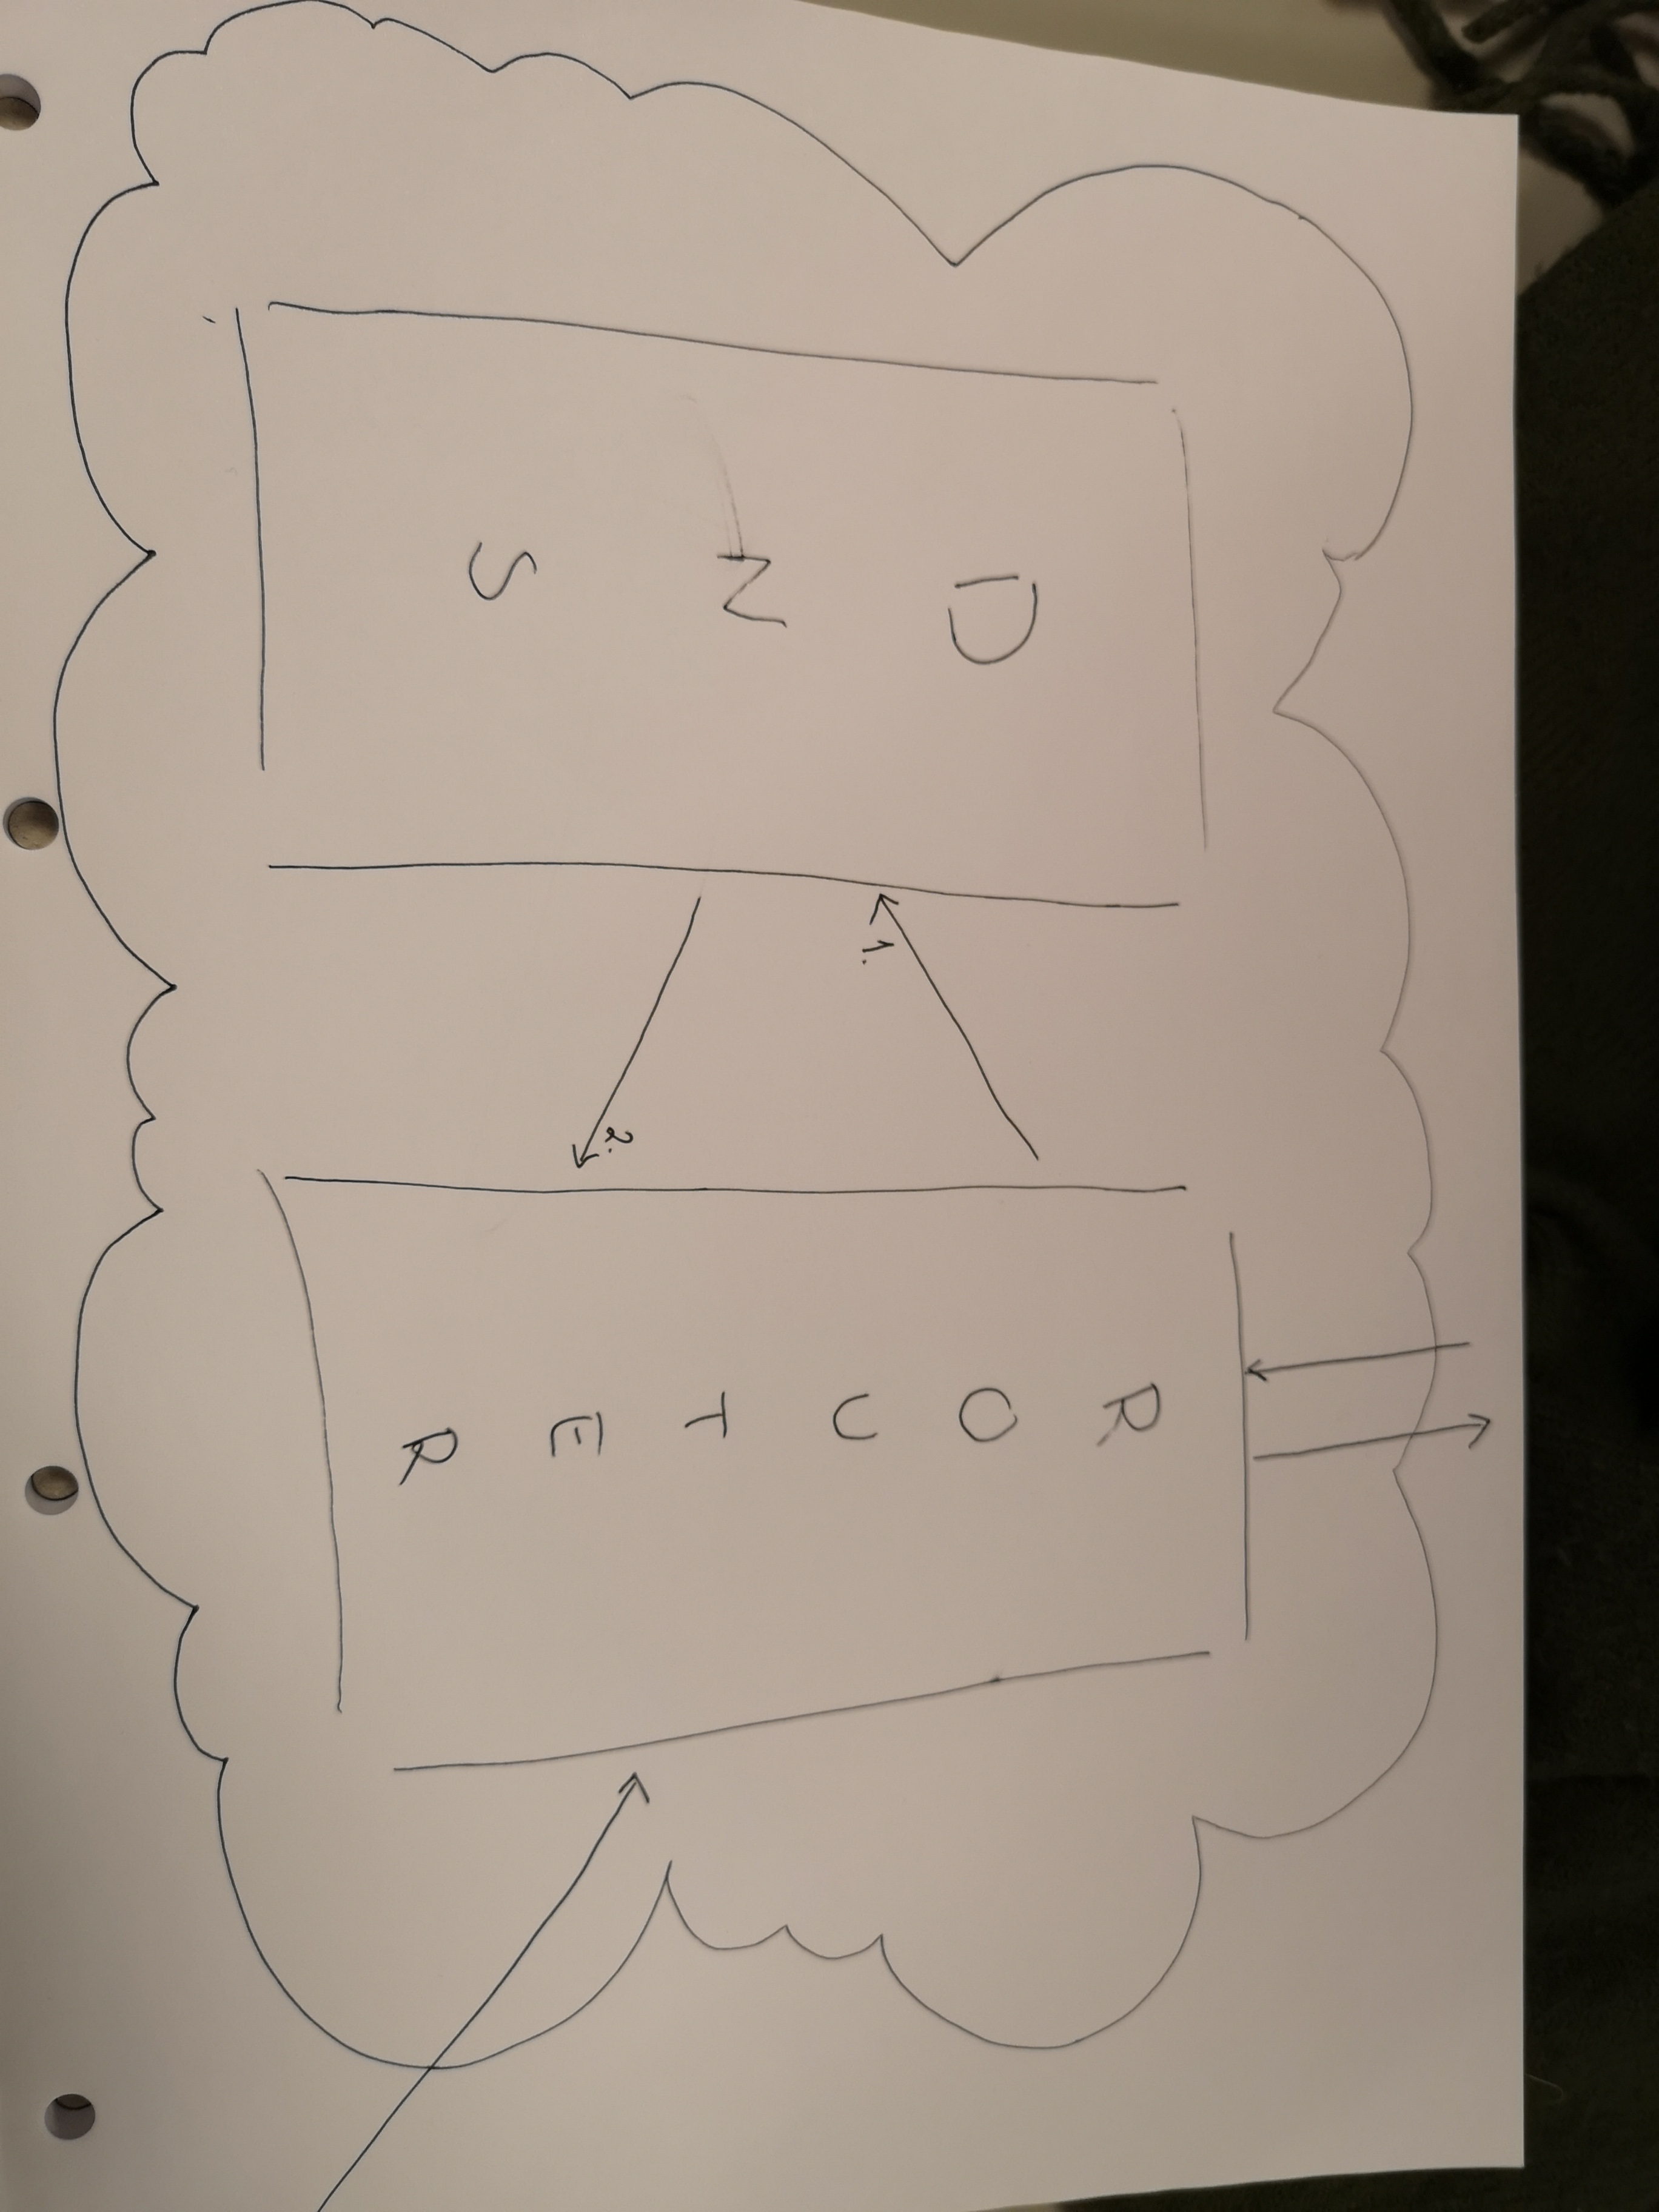 DNS
1.
2.
ROUTER